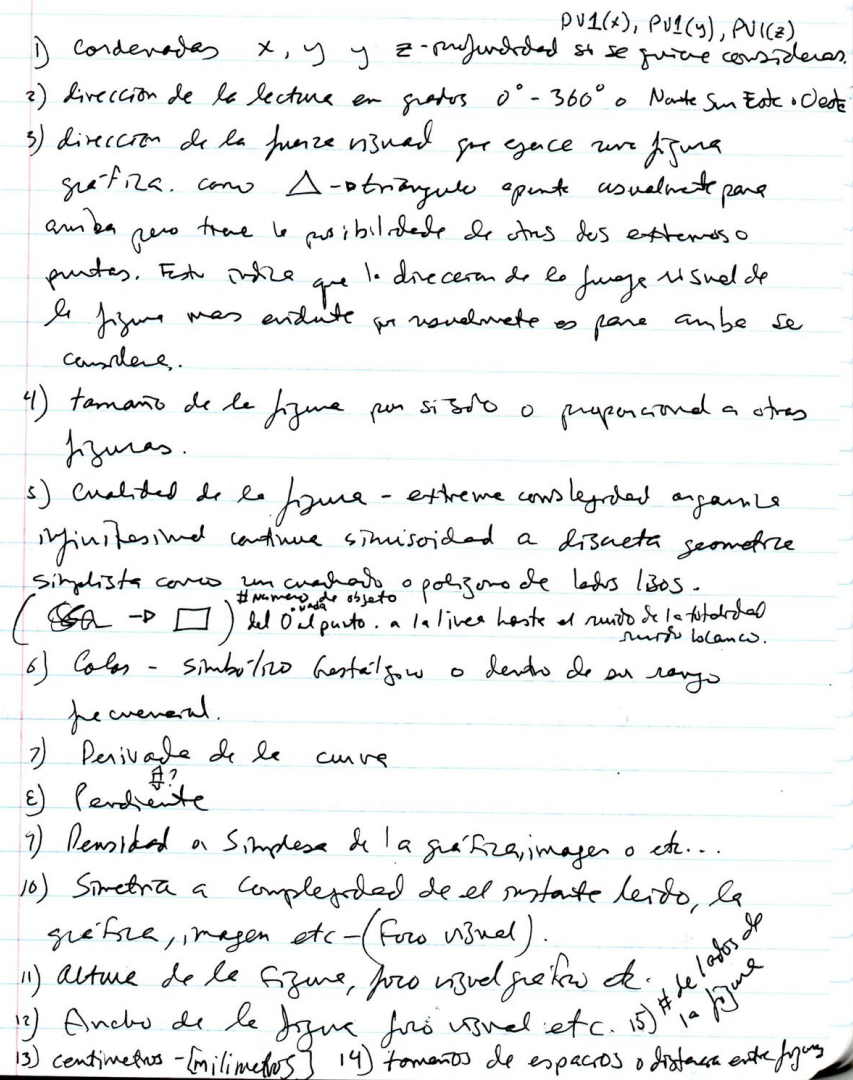 PV1(x), PV1(y), PV1(z)
1) Cordenadas x, y y z-profundidad si se quiere consideras.
2) dirección de la lectura en grados 0° - 360° o Norte Sur Este o Oeste
3) dirección de la fuerza visual que ejerce una figura
gráfica. como △ -> triangulo apunta usualmente para
arriba pero tiene la posibilidade de otros dos extremos o
puntas. Esto indica que la direccion de la fuerza visual de
la figura mas evidente que usualmente es para arriba se
considere.
4) tamaño de la figura por si solo o proporcional a otras
figuras.
5) Cualidad de la figura - extrema complegidad organica
infinitesimal continua sinusoidad a discreta geometrica
simplista como un cuadrado o poligono de lados lisos.
# Numero de objeto
( -> □ ) del 0 al punto . a la linea hasta el ruido de la totalidad
ruido blanco.
6) Color - simbólico Gestálgico o dentro de su rango
frecuencial.
7) Derivada de la curva
?
8) Pendiente
9) Densidad o Simplesa de la gráfica, imagen o etc...
10) Simetria a Complegidad de el instante leido, la
gráfica, imagen etc - (Foro visual).
11) altura de la figura, foro visual grafico etc.
12) Ancho de la figura foro visual etc. 15) # de lados de
la figura
13) centimetros - [milimetros] 14) tamaños de espacios o distancia entre figuras